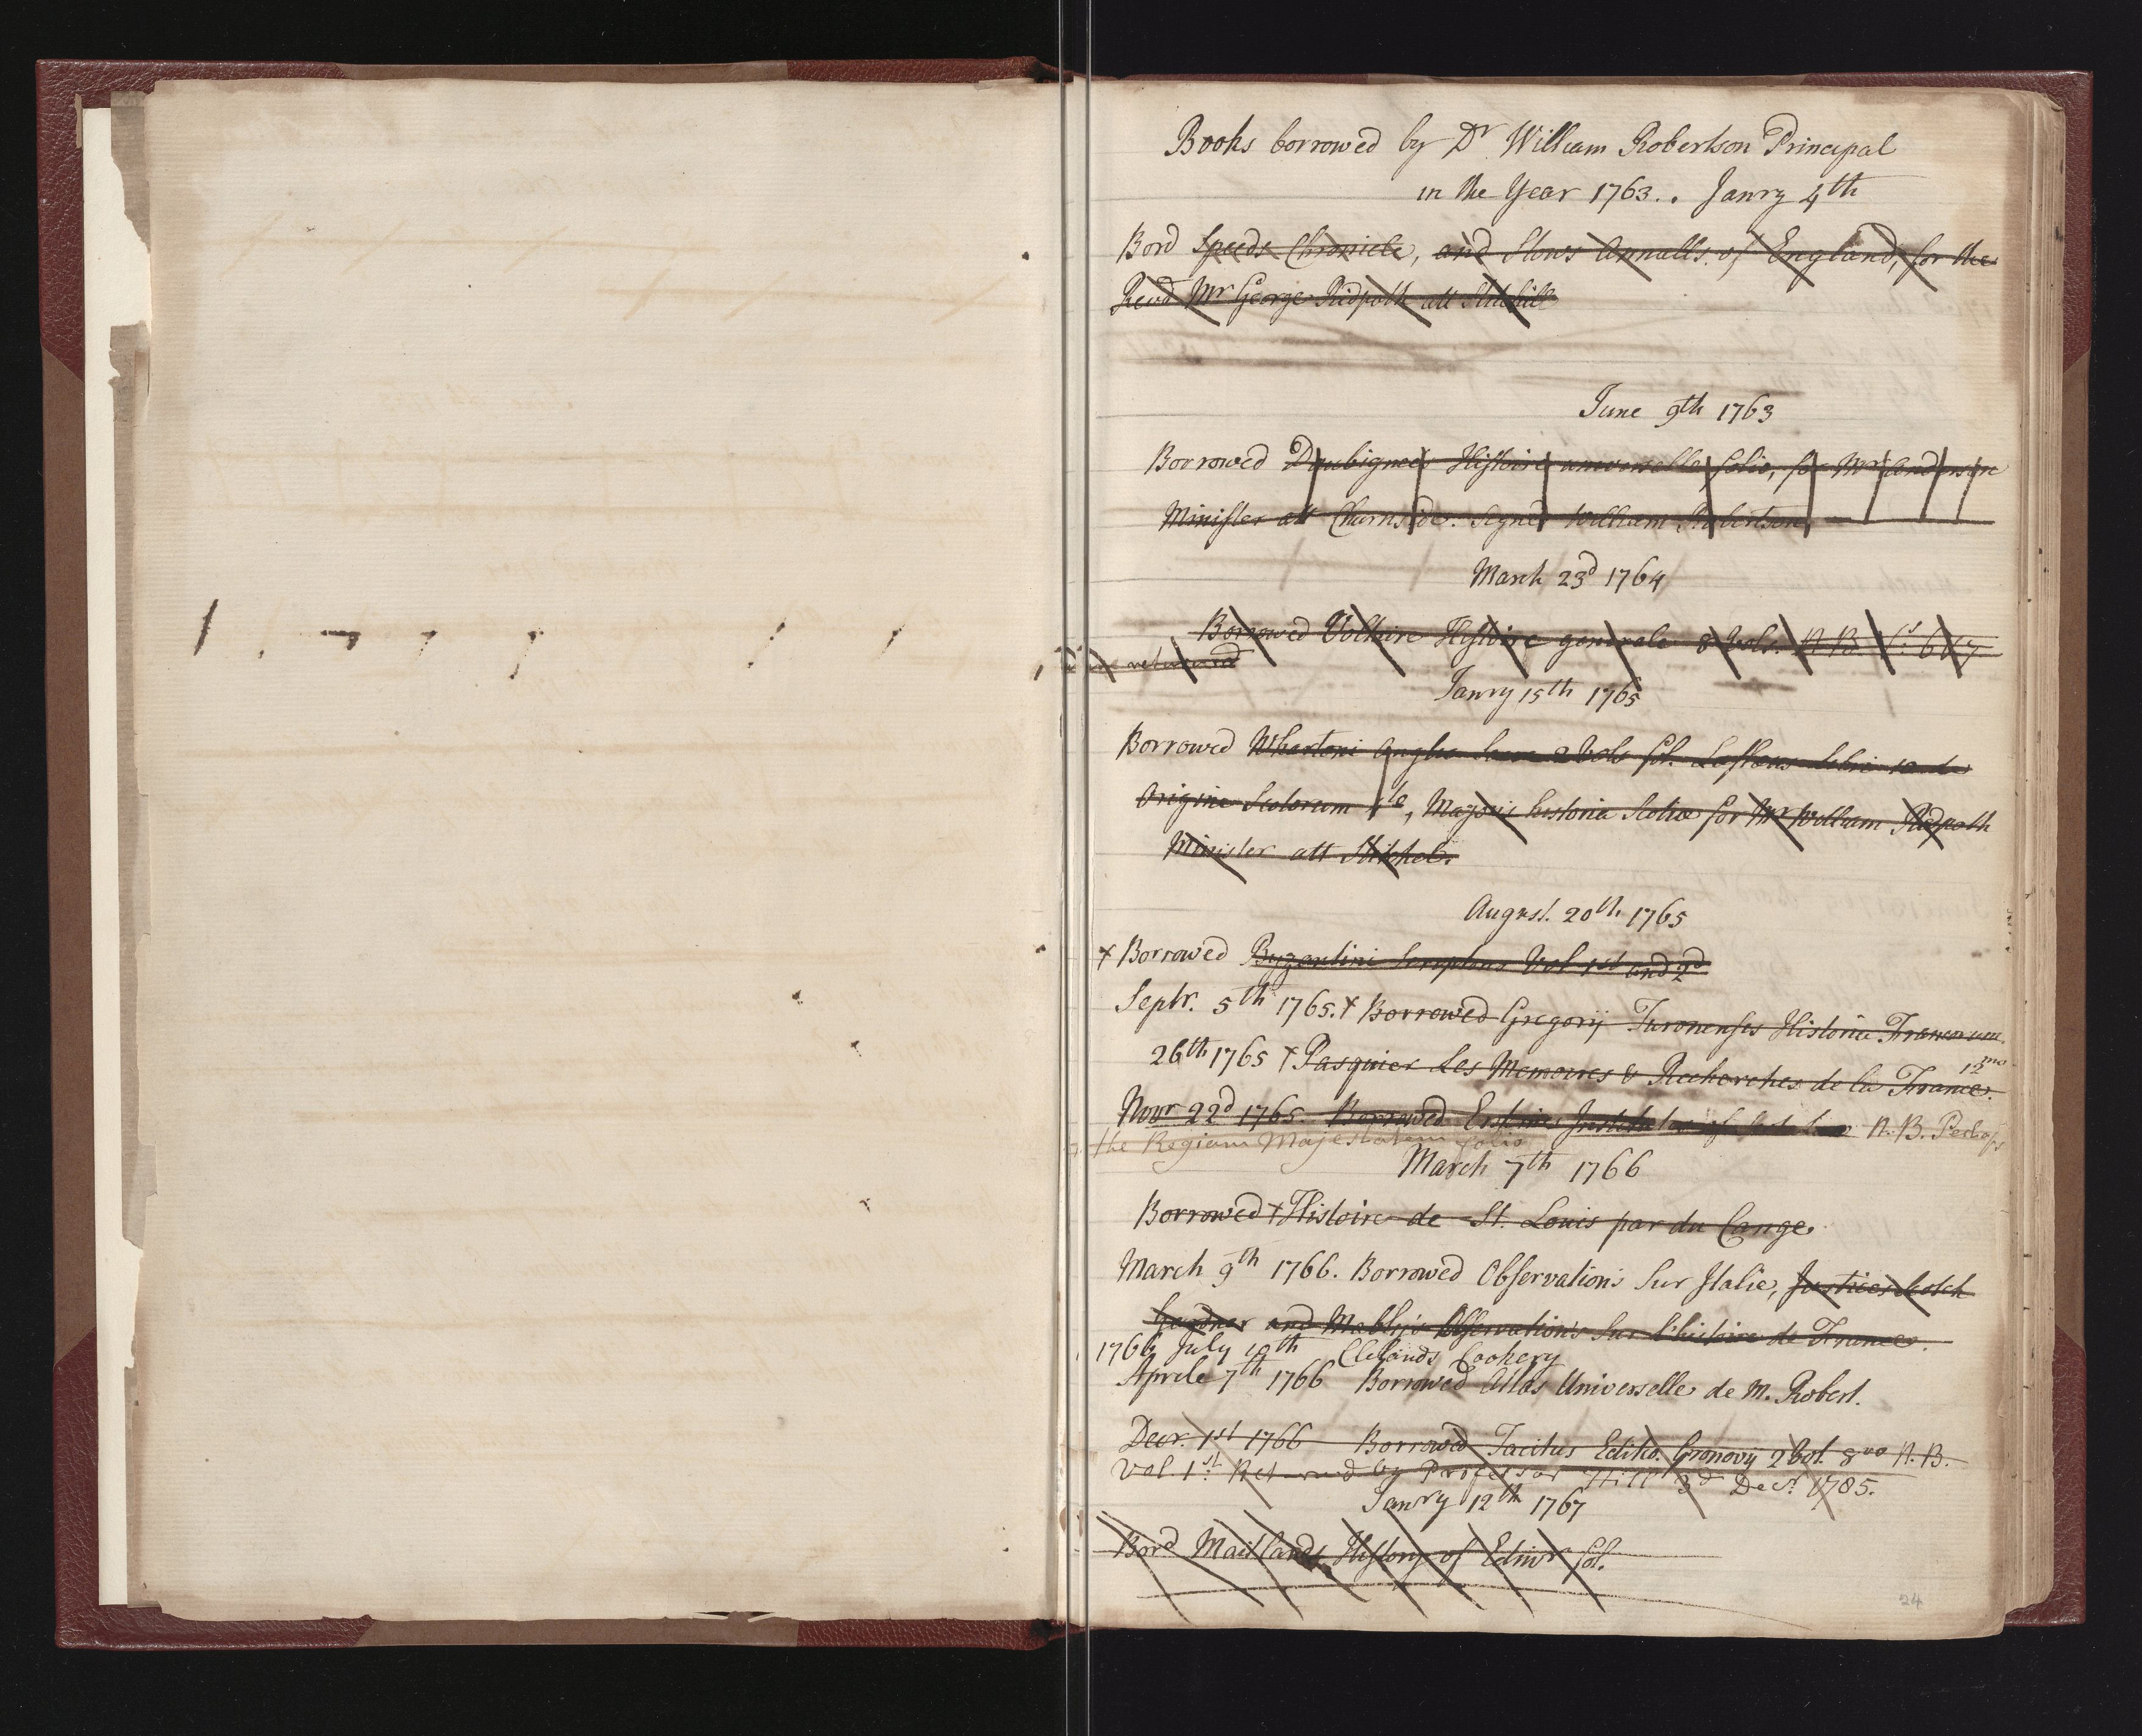 Books borrowed by Dr William Robertson Principal
in the Year 1763.. Janry 4th
Bord Speeds Chronicle, and Stows Annalls of England, for the
Revd Mr George Ridpath att Stitchill
June 9th 1763
Borrowed Daubignes Histoire universelle folio, for Mr Anderson
Minister att Churnside. Signed William Robertson
March 23d 1764
Borrowed Voltaire Histoire generale 8 Vols. N.B. 6 & 7
returned
Janry 15th 1765
Borrowed Whartoni Anglia Sacra 2 Vols fol. Lesslaeus de
Origine Scotorum 4to, Majoris historia Scotiae for Mr William Ridpath
Minister att Stitchel.
Augrst. 20th 1765
+ Borrowed Byzantini Scriptores Vol 1st and 2d
Septr. 5th 1765. + Borrowed Gregorij Turonenses Historia Francorum.
26th 1765 + Pasquier Les Memoires & Recherches de la France. 12mo
Novr 22d 1765. Borrowed Erskines Institutes of N.B. Perhaps
the Regiam Majestatem folio
March 7th 1766
Borrowed + Histoire de St. Louis par du Cange.
March 9th 1766. Borrowed Observations Sur Italie, Justices Scotch
Gardner and Mably's Observations Sur l'histoire de France.
1766 July 10th Clelands Cookery
Aprile 7th 1766 Borrowed Atlas Universelle de M. Robert.
Decr. 1st 1766 Borrowed Tacitus Editio. Gronovij 2 Vol. 8vo N.B.
Vol. 1st. Returned by Professor Hill 3d Decr. 1785.
Janry 12th 1767
Bord Maitlands History of Edinr fol.
24